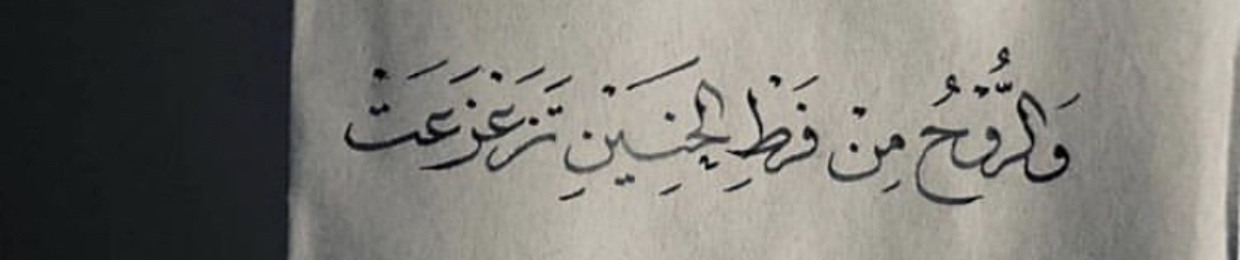 وَالرُّوْحُ مِنْ فَرَطِ الحَنِيَنِ تَزَعْزَعَتْ